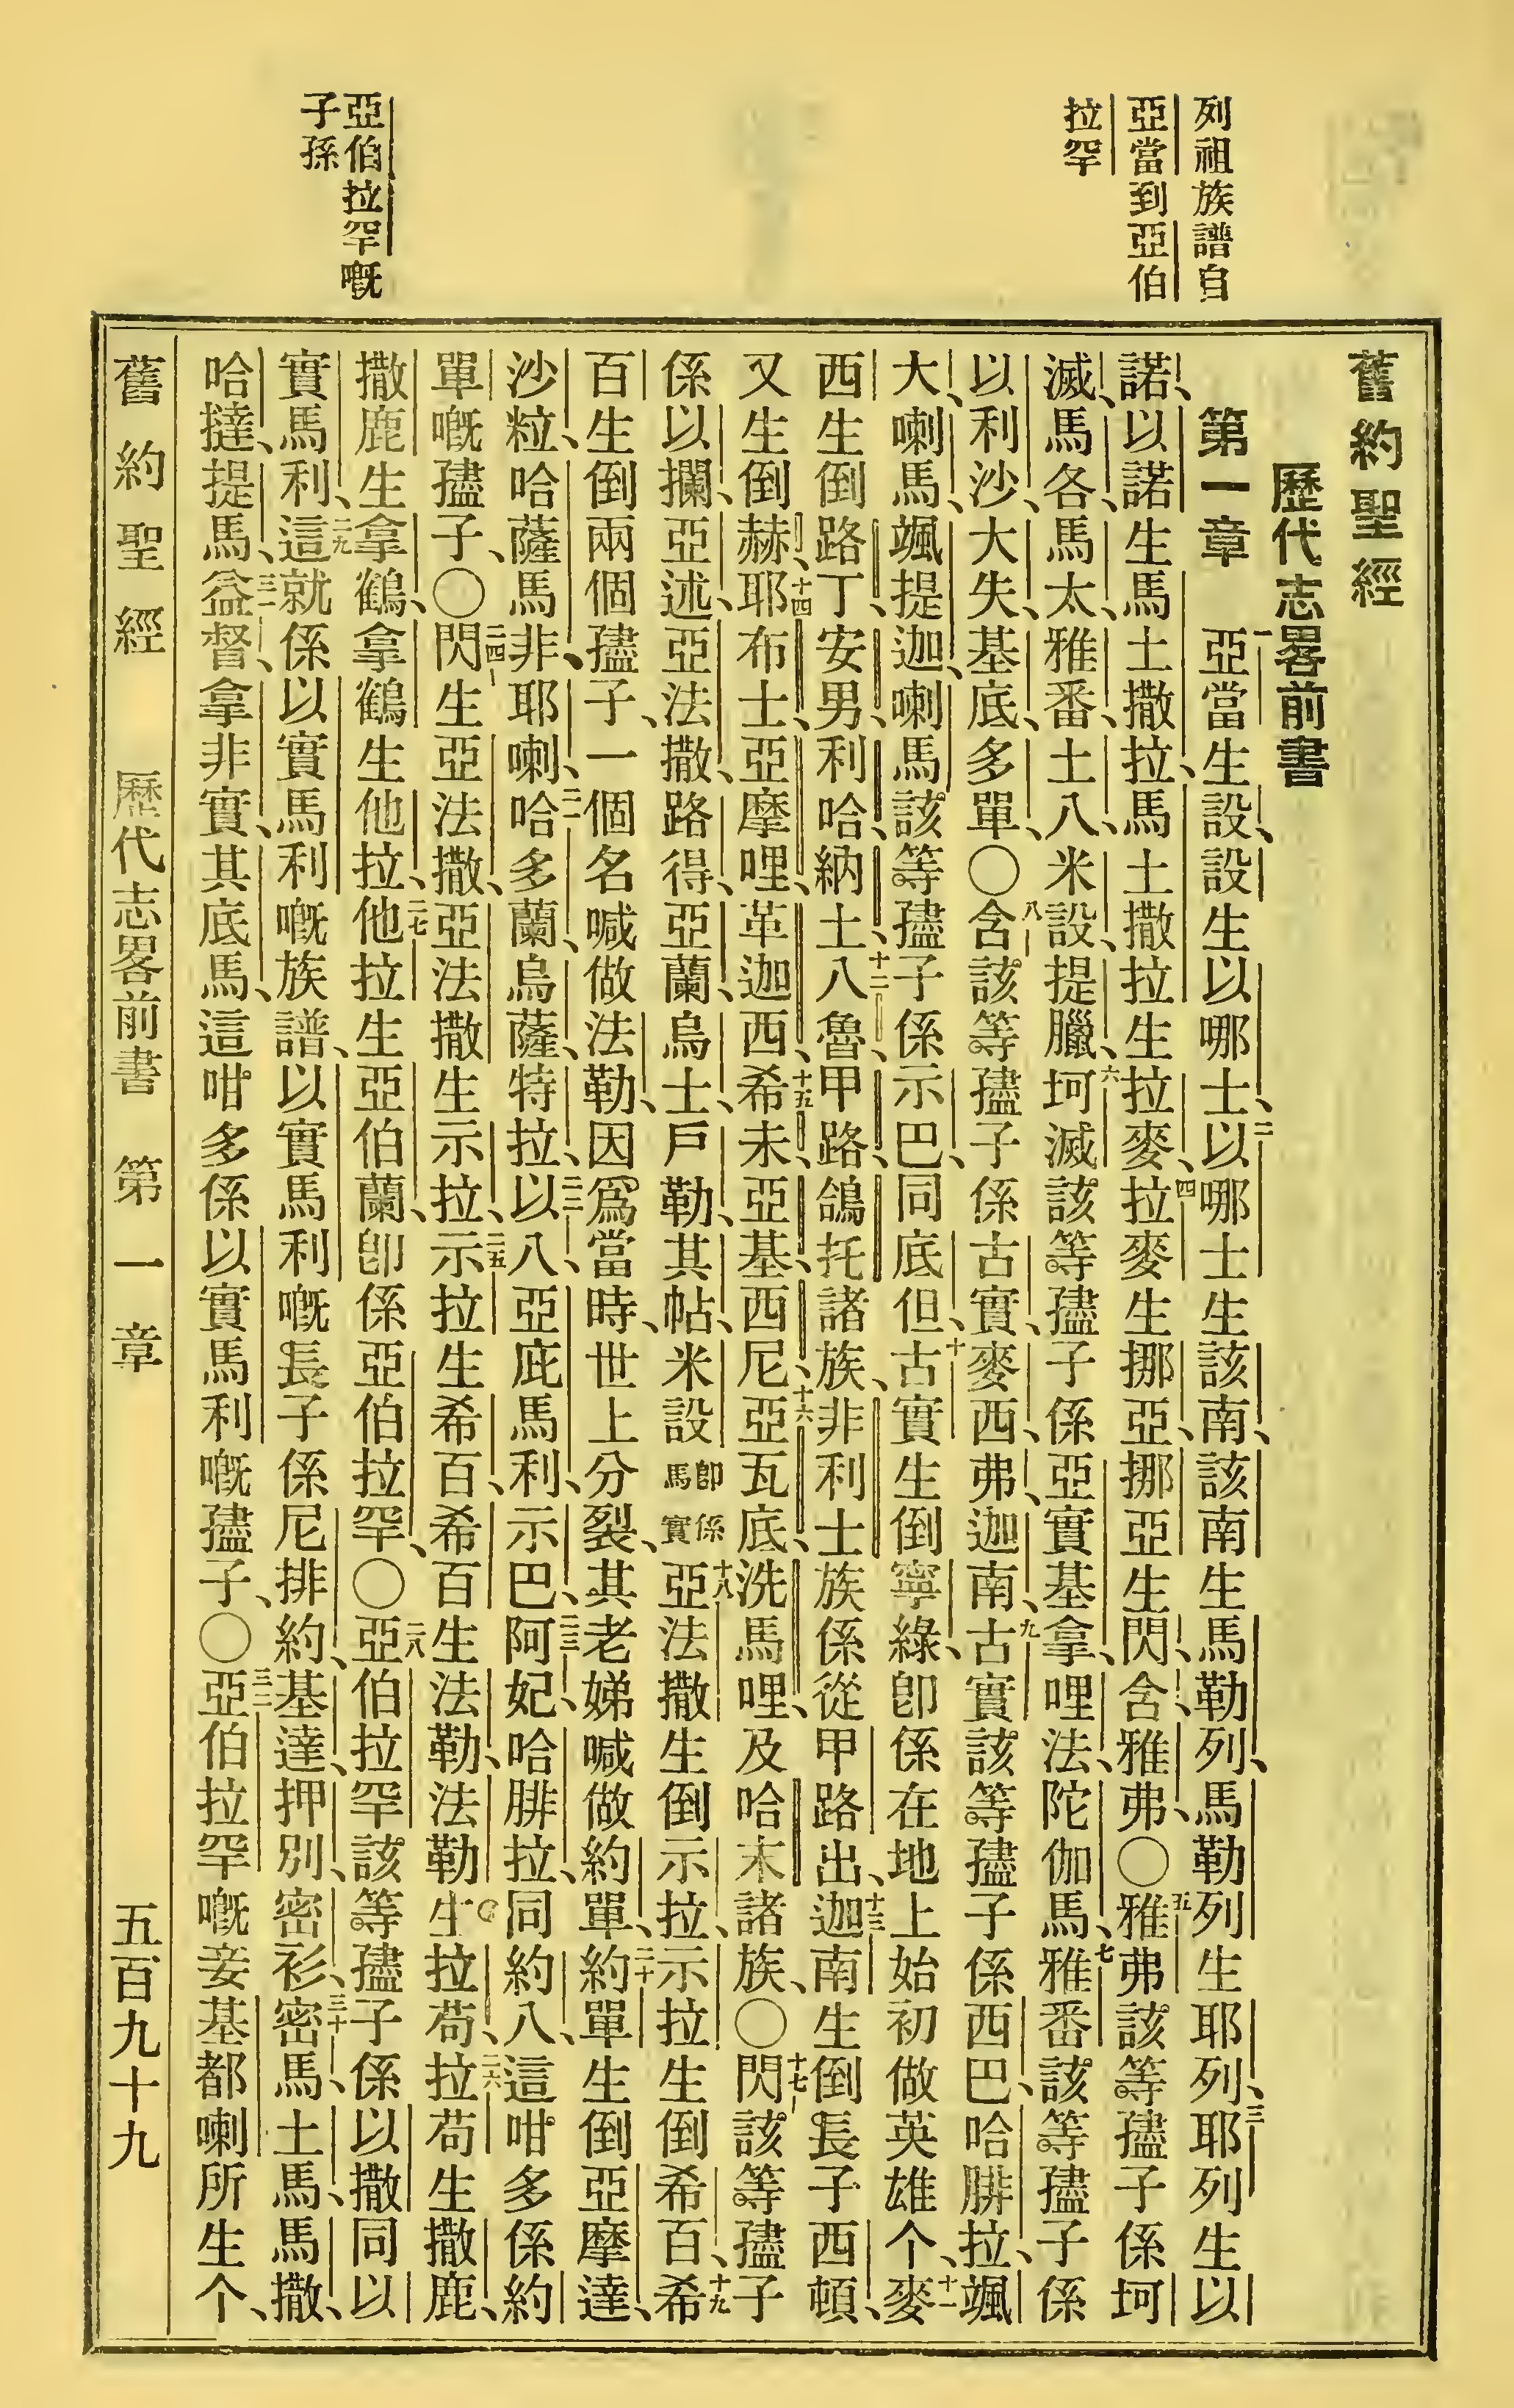 列祖族譜自
亞當到亞伯
拉罕
亞伯拉罕嘅
子孫
舊約聖經
歷代志畧前書
第一章　一亞當生設、設生以哪士、二以哪士生該南、該南生馬勒列、馬勒列生耶列、三耶列生以
諾、以諾生馬土撒拉、馬土撒拉生拉麥、四拉麥生挪亞、挪亞生閃、含、雅弗、〇五雅弗該等孻子係坷
滅、馬各、馬太、雅番、土八、米設、提臘、六坷滅該等孻子係亞實基拿、哩法、陀伽馬、七雅番該等孻子係
以利沙、大失、基底、多單、〇八含該等孻子係古實、麥西、弗、迦南、九古實該等孻子係西巴、哈腓拉、颯
大、喇馬、颯提迦、喇馬該等孻子係示巴、同底但、十古實生倒寧綠、卽係在地上始初做英雄个、十一麥
西生倒路丁、安男、利哈、納土八、十二魯、甲路、鴿托諸族、非利士族係從甲路出、十三迦南生倒長子西頓、
又生倒赫、十四耶布士、亞摩哩、革迦西、十五希未、亞基、西尼、十六亞瓦底、洗馬哩、及哈末諸族、〇十七閃該等孻子
係以攔、亞述、亞法撒、路得、亞蘭、烏士、戶勒、其帖、米設卽係馬實、十八亞法撒生倒示拉、示拉生倒希百、十九希
百生倒兩個孻子、一個名喊做法勒、因爲當時、世上分裂、其老娣喊做約單、二十約單生倒亞摩達、
沙粒、哈薩馬非、耶喇、二一哈多蘭、烏薩、特拉、二二以八、亞庇馬利、示巴、二三阿妃、哈腓拉、同約八、這咁多係約
單嘅孻子、〇二四閃生亞法撒、亞法撒生示拉、二五示拉生希百、希百生法勒、法勒生拉苟、二六拉苟生撒鹿、
撒鹿生拿鶴、拿鶴生他拉、二七他拉生亞伯蘭、卽係亞伯拉罕、〇二八亞伯拉罕該等孻子係以撒同以
實馬利、二九這就係以實馬利嘅族譜、以實馬利嘅長子係尼排約、基達、押別、密衫、三十密馬、土馬、馬撒、
哈撻、提馬、三一益督、拿非實、其底馬、這咁多係以實馬利嘅孻子、〇三二亞伯拉罕嘅妾基都喇所生个、
舊約聖經　歷代志畧前書　第一章　五百九十九